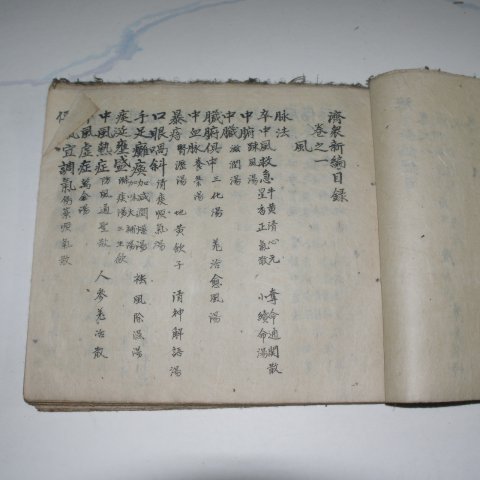 濟衆新編目錄
卷之一
風
脉法
卒中風救急 牛黃清心元 奪命通關散
星香正氣散 小續命湯
中腑 疎風湯
中臟 滋潤湯
臟腑俱中 三化湯 羗活愈風湯
中血脉 養榮湯
暴瘖 腎瀝湯 地黃飮子 淸神解語湯
口眼喎斜 淸痰順氣湯
手足癱瘓 加減潤燥湯 祛風除濕湯
加味大補湯
痰涎壅盛 三生飮
中風熱症 防風通聖散 人參羗活散
風虛症 萬金湯
宜調氣 順氣散